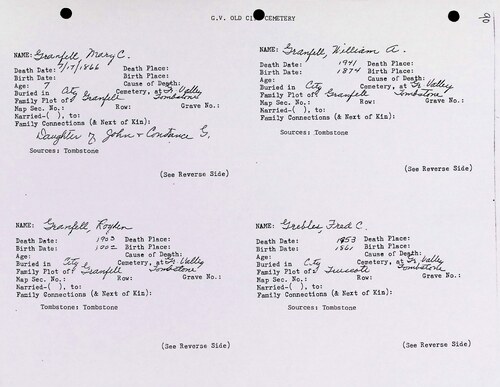 G.V. OLD CITY CEMETERY
90
NAME: Granfell, Mary C.
Death Date: 7/17/1866 Death Place:
Birth Date: Birth Place:
Age: 7 Cause of Death:
Buried in City Cemetery, at Gr. Valley
Family Plot of: Granfell Tombstone
Map Sec. No.: Row: Grave No.:
Married-( ), to:
Family Connections (& Next of Kin):
Daughter of John & Constance G.
Sources: Tombstone
(See Reverse Side)
NAME: Granfell, William A.
Death Date: 1941 Death Place:
Birth Date: 1874 Birth Place:
Age: Cause of Death:
Buried in City Cemetery, at Gr. Valley
Family Plot of: Granfell Tombstone
Map Sec. No.: Row: Grave No.:
Married-( ), to:
Family Connections (& Next of Kin):
Sources: Tombstone
(See Reverse Side)
NAME: Granfell,
Death Date: 1903 Death Place:
Birth Date: Birth Place:
Age: Cause of Death:
Buried in City Cemetery, at Gr. Valley
Family Plot of: Granfell Tombstone
Map Sec. No.: Row: Grave No.:
Married-( ), to:
Family Connections (& Next of Kin):
Tombstone: Tombstone
(See Reverse Side)
NAME: Grebles, Fred C.
Death Date: Death Place:
Birth Date: 1861 Birth Place:
Age: Cause of Death:
Buried in City Cemetery, at Gr. Valley
Family Plot of: Tombstone
Map Sec. No.: Row: Grave No.:
Married-( ), to:
Family Connections (& Next of Kin):
Sources: Tombstone
(See Reverse Side)